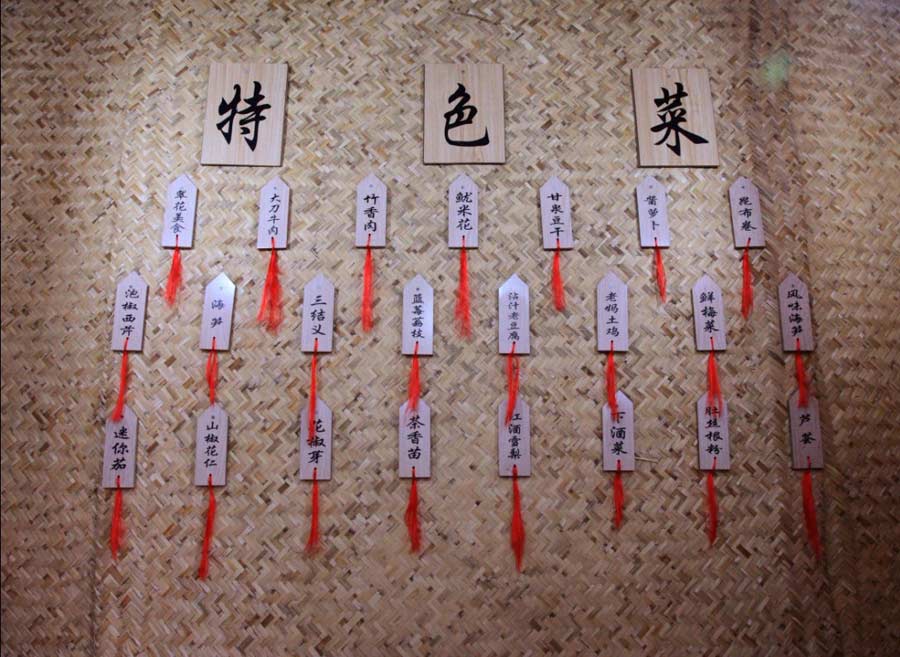 特色菜
翠花美食
大刀牛肉
竹香肉
鱿米花
甘泉豆干
酱萝卜
昆布卷
泡椒西芹
海笋
三结义
蓝莓荔枝
沾汁老豆腐
老妈土鸡
鲜梅菜
风味海笋
迷你茄
山椒花仁
花椒芽
茶香苗
红酒雪梨
下酒菜
肚丝根粉
芦荟